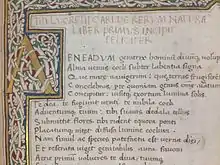 T. LVCRETI CARI DE RERVM NATVRA
LIBER PRIMVS INCIPIT
FELICITER
AENEADVM genetrix hominum diuumq; volupt
Alma uenus coeli subter labentia signa
Quae mare nauigerum quae terras frugiferent
Concelebras per te quoniam genus omne animant
Concipitur uisitq; exortum lumina solis
Te dea te fugiunt uenti te nubila coeli
Aduentumq; tuum tibi suauis daedala tellus
Submittit flores tibi rident aequora ponti
Placatumq; nitet diffuso lumine coelum
Nam simul ac species patefacta est uerna diei
Et reserata uiget genitabilis aura fauoni
Aeriae primum uolucres te diua tuumq;